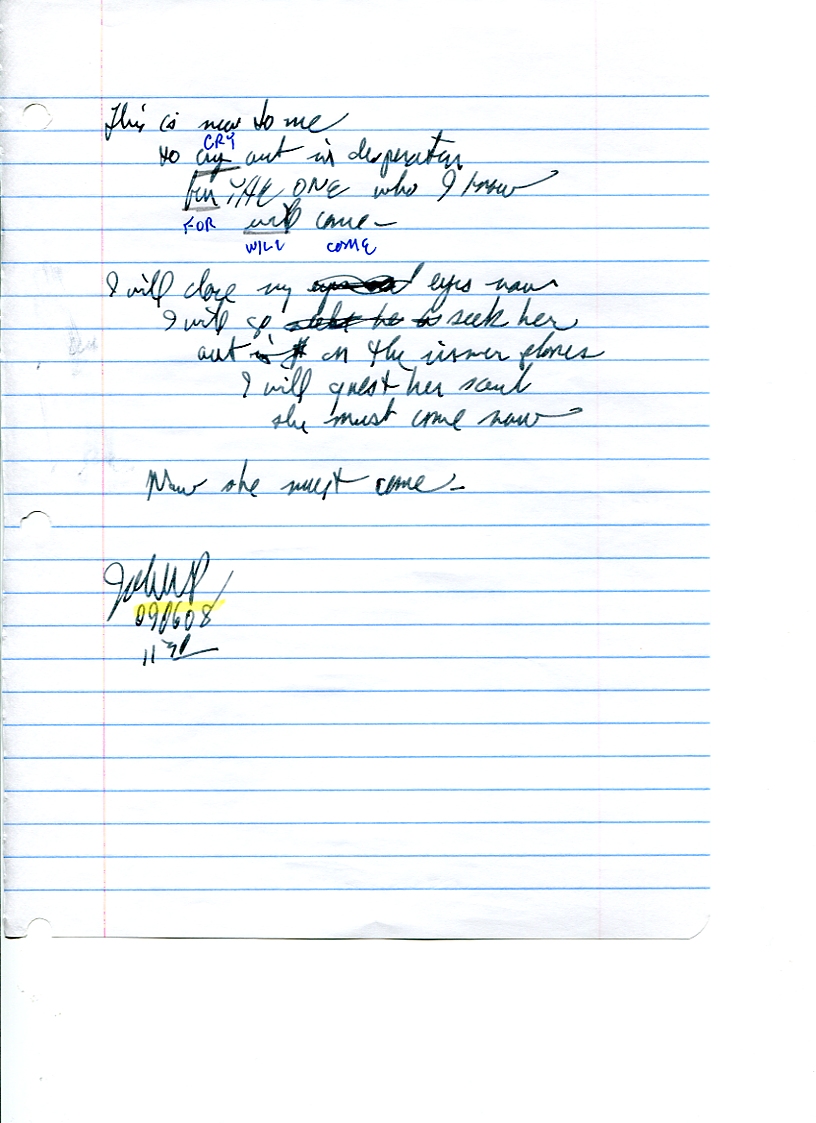 This is new to me
CRY
to cry out in desperation
for THE ONE who I know
FOR will come —
WILL COME
I will close my eyes now
I will go seek her
out on the inner planes
I will quest her soul
she must come now
Now she must come —
JohnWP
090608
11 30